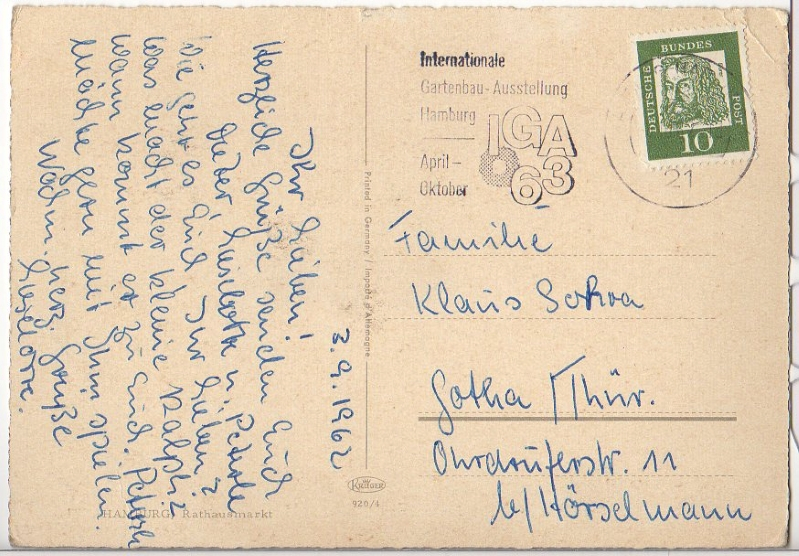 3.9.1962
Ihr Lieben!
Herzliche Grüße senden Euch
Dieter, Liselotte u. Petra
Wie geht es Euch, Ihr Lieben?
Was macht der kleine Ralph?
Wann kommt er zu Euch.
möchte gern mit ihm spielen.
Nochm. herz. Grüße
Liselotte.
HAMBURG, Rathausmarkt
Printed in Germany / Imporié d'Allemagne
KRÜGER
920/4
Internationale
Gartenbau-Ausstellung
Hamburg
IGA
63
April –
Oktober
DEUTSCHE BUNDESPOST
10
21
Familie
Klaus
Gotha / Thür.
Ohrdruferstr. 11
b/ Hörselmann